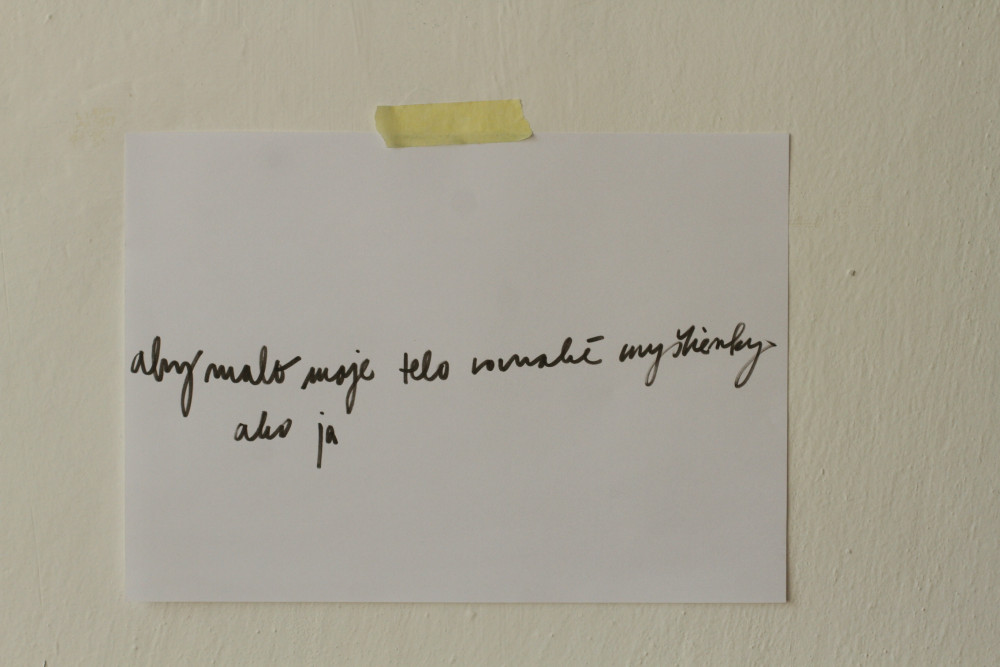 aby malo moje telo rovnaké myšlienky
ako ja